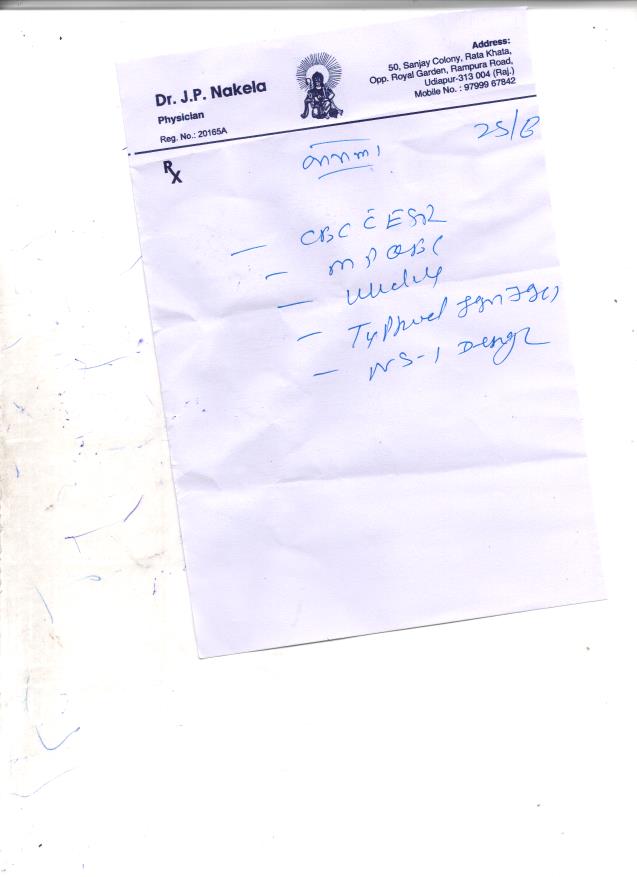 Dr. J.P. Nakela
Physician
Reg. No.: 20165A
Address:
50, Sanjay Colony, Rata Khata,
Opp. Royal Garden, Rampura Road,
Udiapur-313 004 (Raj.)
Mobile No. : 97999 67842
Rx
25/8
- CBC C̄ ESR
- MP QBC
- Widal
- Typhidot IgM IgG
- NS-1 Dengue